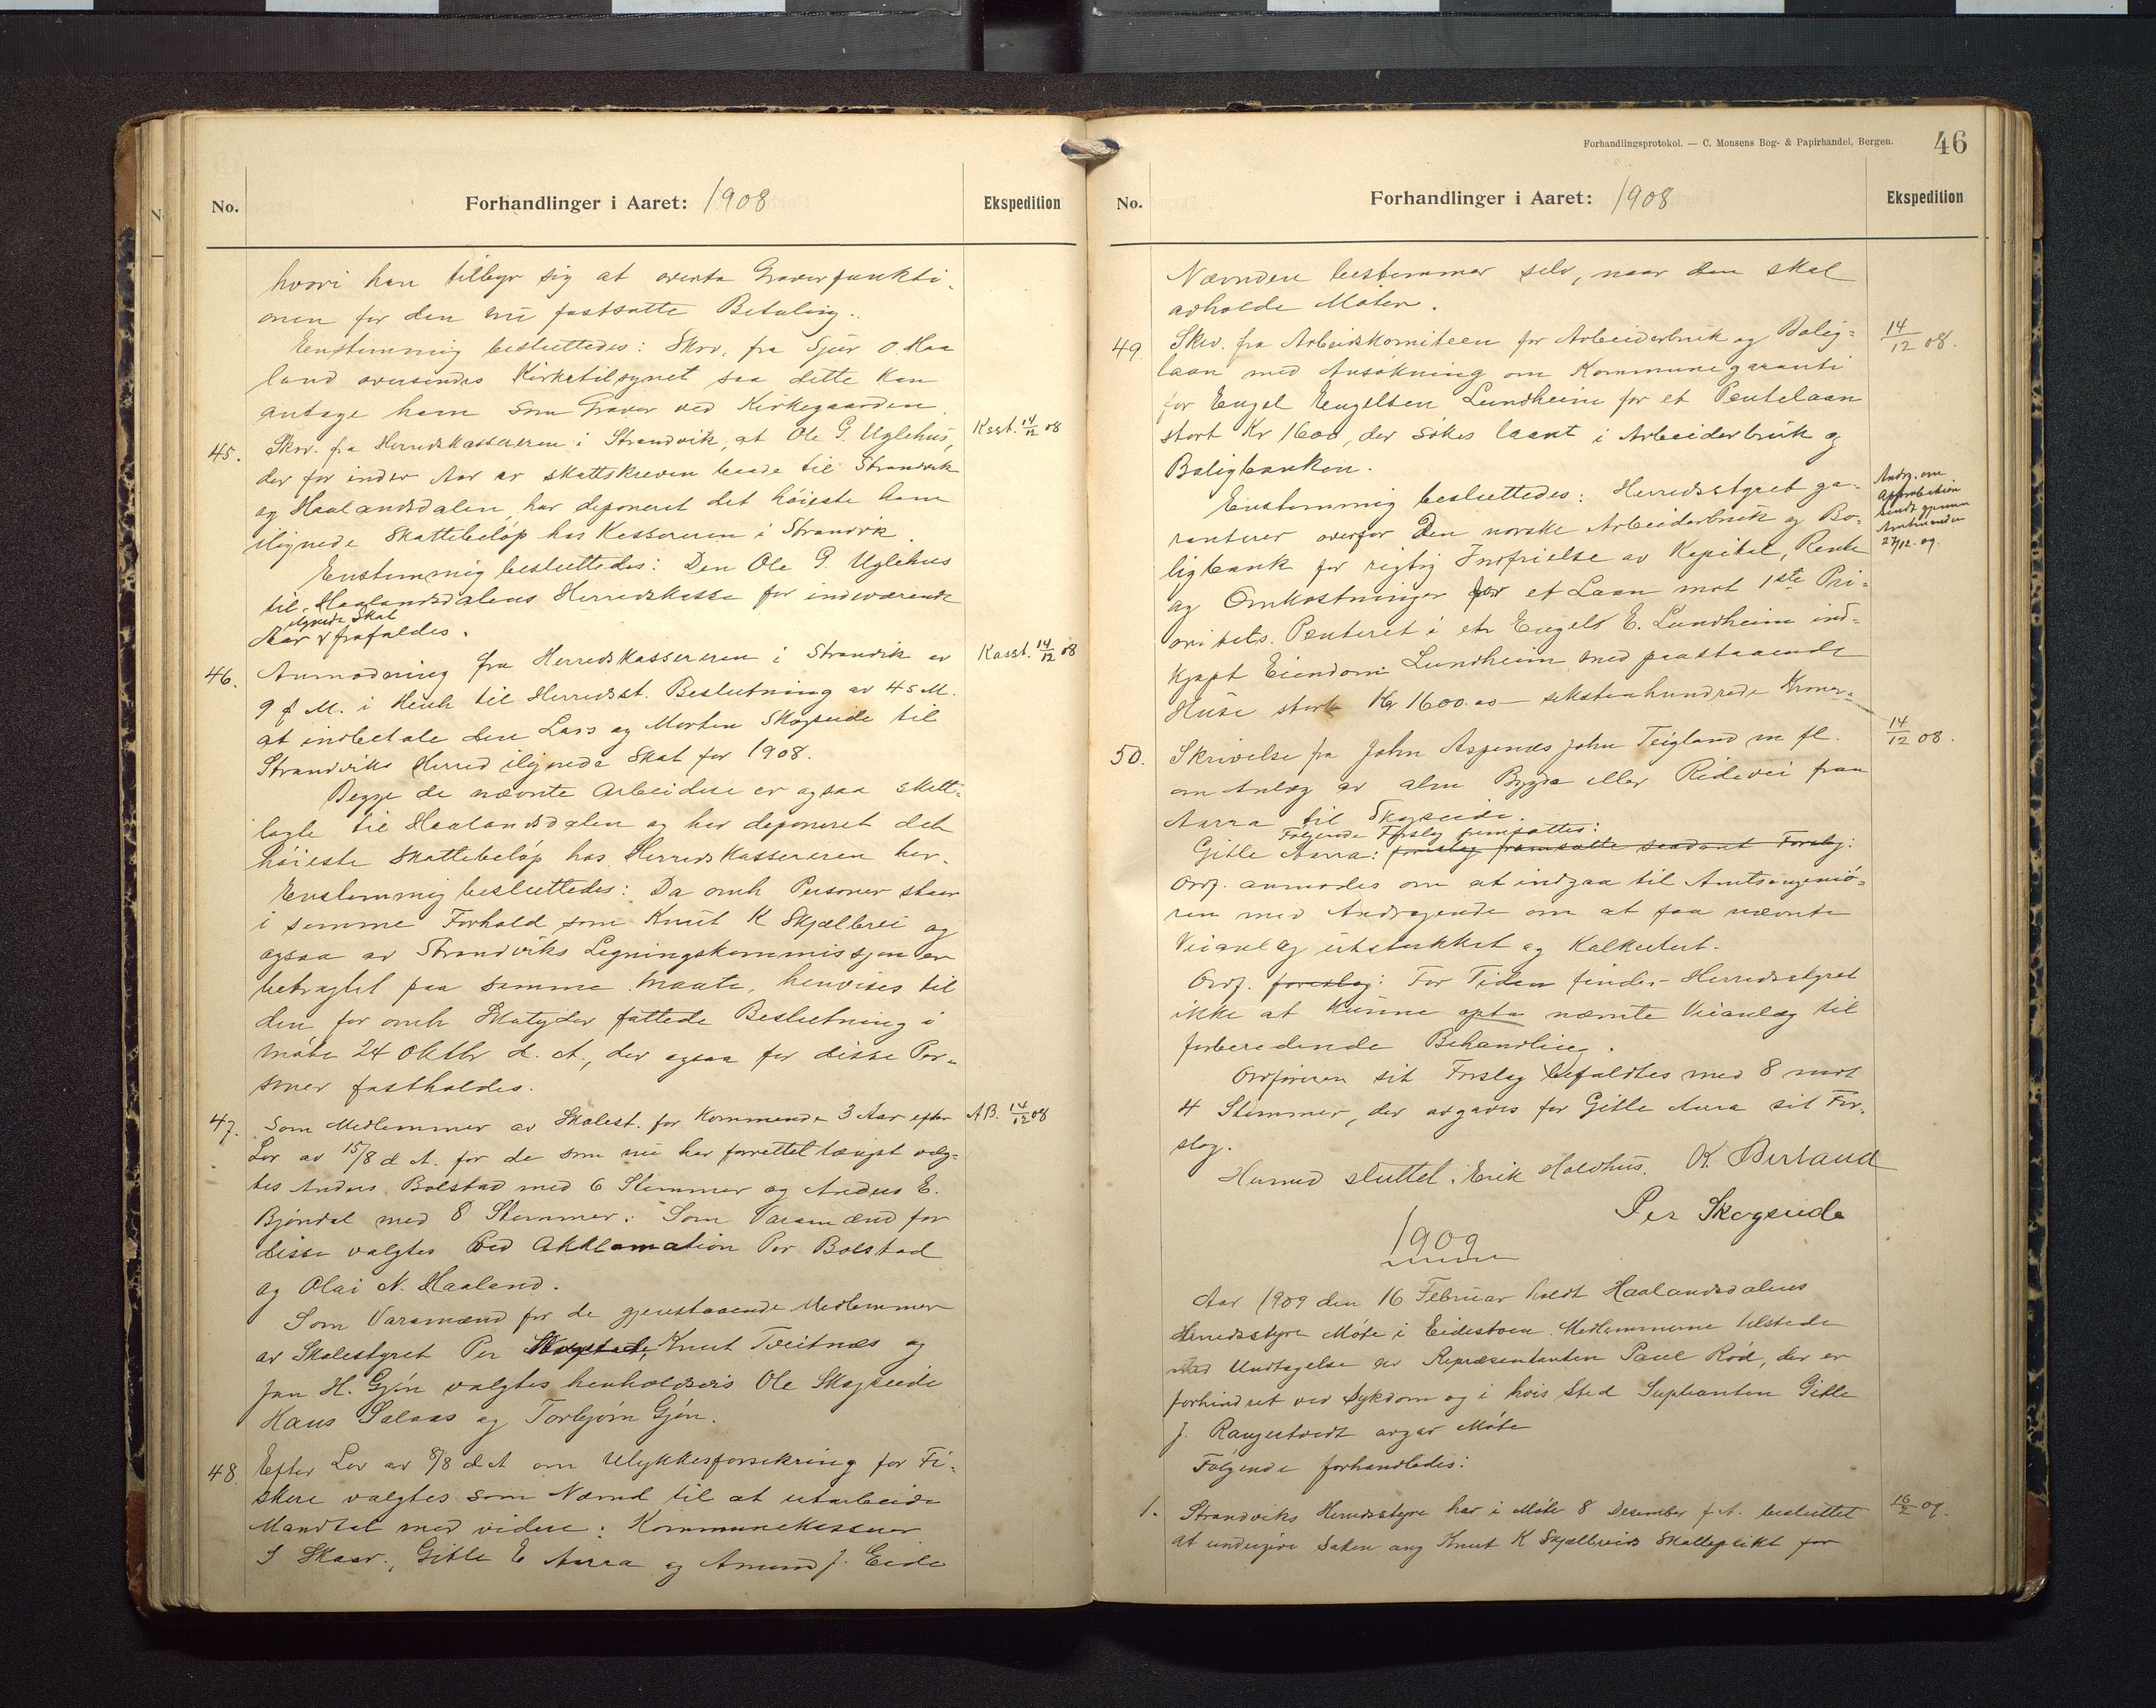 No.
Forhandlinger i Aaret: 1908
Ekspedition
hvori han tilbyr sig at overta Graverfunkti-
onen for den nu fastsatte Betaling.
Enstemmig besluttedes: Skrv. fra Sjur O. Haa
land oversendes Kirketilsynet saa dette kan
antage ham som Graver ved Kirkegaarden.
45. Skrv. fra Herredskassereren i Strandvik, at Ole G. Uglehus, Ksst. 14/12 08
der for inder Aar er skattskreven baade til Strandvik
og Haalandsdalen, har deponeret det høieste ham
ilignede Skattebeløp hos Kassereren i Strandvik.
Enstemmig besluttedes: Den Ole G. Uglehus
til Haalandsdalens Herredskasse for indeværende
ilignede Skat
Aar frafaldes.
46. Anmodning fra Herredskassereren i Strandvik av Kasst. 14/12 08
9 f M. i Henh til Herredsst. Beslutning av 45 M.
at indbetale den Lars og Morten Skogseide til
Strandviks Herred ilignede Skat for 1908.
Begge de nævnte Arbeidere er ogsaa skatt-
lagte til Haalandsdalen og har deponeret det
høieste Skattebeløp hos Herredskassereren her.
Enstemmig besluttedes: Da omh Personer staar
i samme Forhold som Knut K Skjælbrei og
ogsaa av Strandviks Ligningskommissjon er
betragtet paa samme Maate, henvises til
den for omh Skatyder fattede Beslutning i
Møte 24 Oktbr d. A., der ogsaa for disse Per-
soner fastholdes.
47. Som Medlemmer av Skolest. for kommende 3 Aar efter AB. 14/12 08
Lov av 15/8 d A. for de som nu har forrettet længst valg-
tes Anders Bolstad med 6 Stemmer og Anders E.
Bjøndal med 8 Stemmer. Som Varamænd for
disse valgtes ved Akklamation Per Bolstad
og Olai N. Haaland.
Som Varamænd for de gjenstaaende Medlemmer
av Skolestyret Per Skogseide, Knut Tveitnæs og
Jan H. Gjøn valgtes henholdsvis Ole Skogseide
Hans Salaas og Torbjørn Gjøn.
48 Efter Lov av 8/8 d A om Ulykkesforsikring for Fi-
skere valgtes som Nævnd til at utarbeide
Mandtal med videre: Kommunekasserer
S Skaar, Gitle E Aarra og Amund J. Eide
Forhandlingsprotokol. — C. Monsens Bog- & Papirhandel, Bergen. 46
No.
Forhandlinger i Aaret: 1908
Ekspedition
Nævnden bestemmer selv, naar den skal
avholde Møter.
49. Skrv. fra Arbeidskomiteen for Arbeiderbruk og Bolig- 14/12 08.
laan med Ansøkning om Kommunegaranti
for Engel Engelsen Lundheim for et Pantelaan
stort Kr 1600, der søkes laant i Arbeiderbruk og
Boligbanken.
Enstemmig besluttedes: Herredsstyret ga-
Andrg. om
Approbation
sendt gjennem
Amtmanden
27/12. 09.
ranterer overfor Den norske Arbeiderbruk og Bo-
ligbank for rigtig Indfrielse av Kapital, Rente
og Omkostninger for et Laan mot 1ste Pri-
oritets Panteret i en Engels E. Lundheim ind-
kjøpt Eiendom Lundheim med paastaaende
Huse stort Kr 1600.00 – sekstenhundrede Kroner.
50. Skrivelse fra John Aspenæs John Teigland m fl. 14/12 08.
om Anlæg av alm Bygde eller Ridevei fraa
Aarra til Skogseide.
Følgende Forslag fremsattes:
Gitle Aarra: foreslog fremsatte saadant Forslag:
Ordf. anmodes om at indgaa til Amtsingeniø-
ren med Andragende om at faa nævnte
Veianlæg utstukket og kalkulert.
Ordf. foreslog: For Tiden finder Herredsstyret
ikke at kunne opta nævnte Veianlæg til
forberedende Behandling.
Ordføreren sit Forslag bifaldtes med 8 mot
4 Stemmer, der avgaves for Gitle Aara sit For-
slag.
Hermed sluttet. Erik Holdhus. K. Berland
Per Skogseide
1909
Aar 1909 den 16 Februar holdt Haalandsdalens
Herredsstyre Møte i Eidestoen. Medlemmerne tilstede
med Undtagelse av Repræsentanten Paul Rød, der er
forhindret ved Sykdom og i hvis Sted Supleanten Gitle
J. Rangestvedt avgav Møte
Følgende forhandledes:
1. Strandviks Herredsstyre har i Møte 8 Desember f A. besluttet 16/2 09.
at undergive Saken ang Knut K Skjælbreids Skatteplikt for